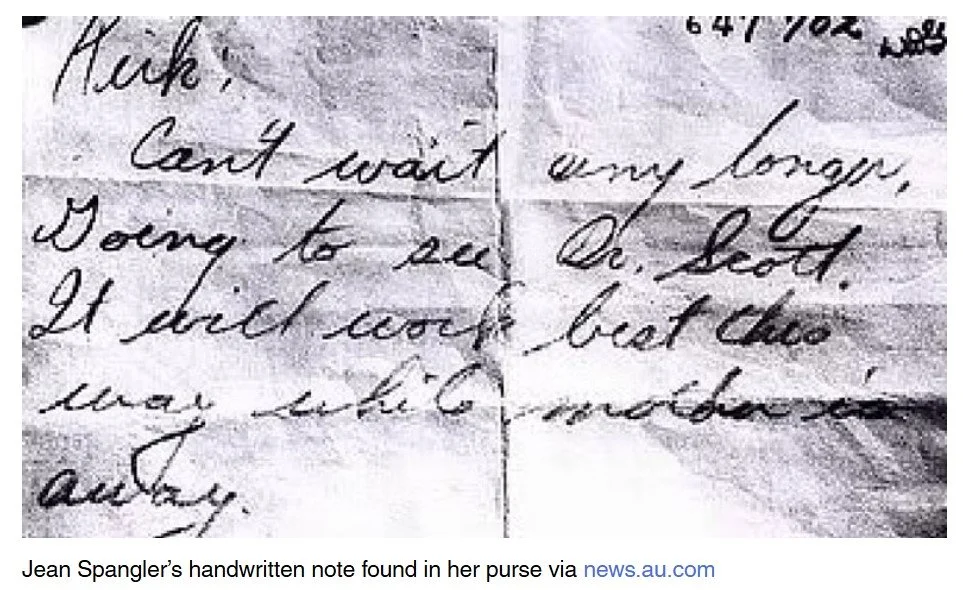 641 702
Kirk,
Can't wait any longer,
Going to see Dr. Scott.
It will work best this
way while mother is
away.
Jean Spangler's handwritten note found in her purse via news.au.com